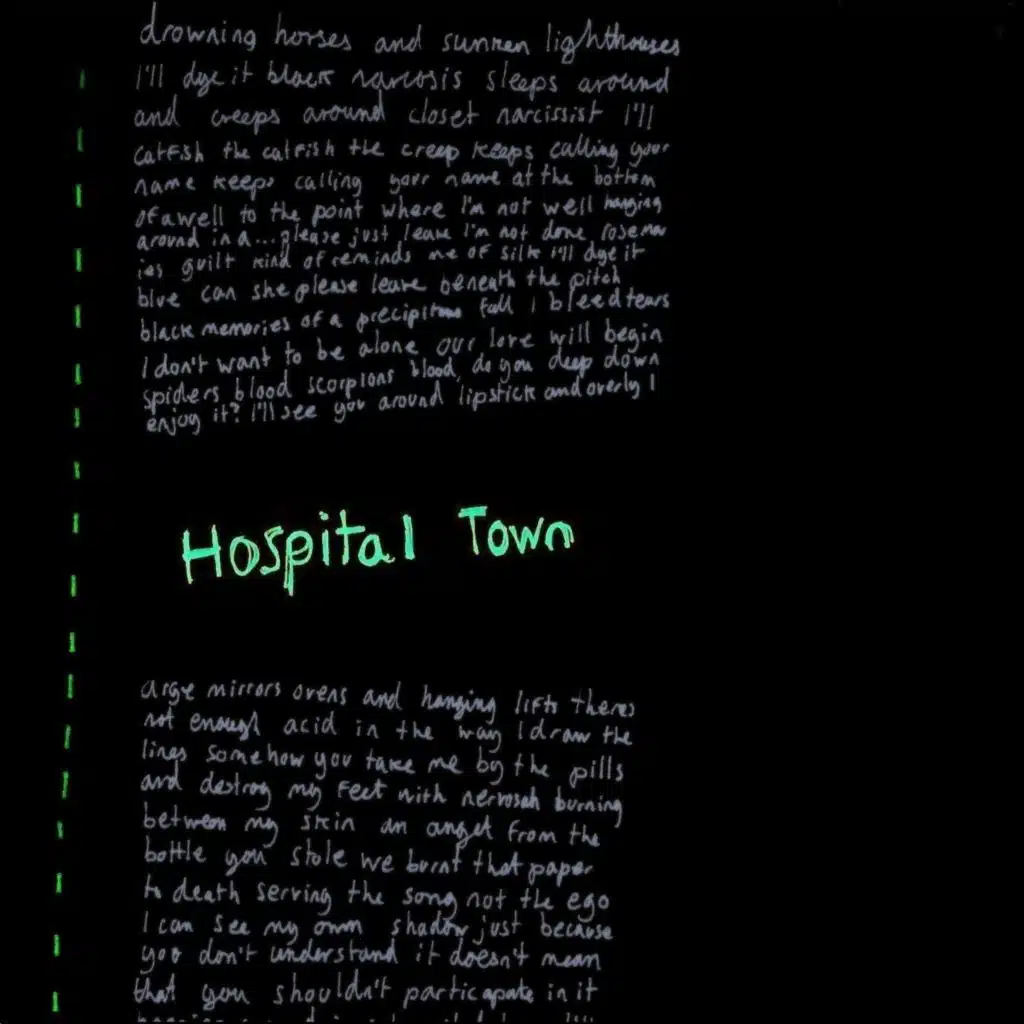 drowning horses and sunken lighthouses
I'll dye it black narcosis sleeps around
and creeps around closet narcissist I'll
catfish the catfish the creep keeps calling your
name keeps calling your name at the bottom
of a well to the point where I'm not well hanging
around in a... please just leave I'm not done rosemar
ies guilt kind of reminds me of silk I'll dye it
blue can she please leave beneath the pitch
black memories of a precipitous fall I bleed tears
I don't want to be alone our love will begin
spiders blood scorpions blood, do you deep down
enjoy it? I'll see you around lipstick and overly I
Hospital Town
arge mirrors ovens and hanging lifts theres
not enough acid in the way I draw the
lines somehow you take me by the pills
and destroy my feet with burning
between my skin an angel from the
bottle you stole we burnt that paper
to death serving the song not the ego
I can see my own shadow just because
you don't understand it doesn't mean
that you shouldn't participate in it